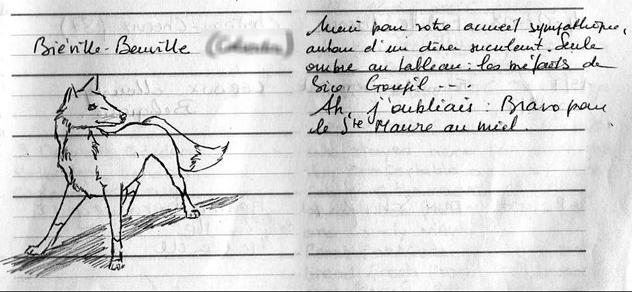 Biéville-Beuville
Merci pour votre accueil sympathique,
autour d'un dîner succulent. Seule
ombre au tableau : les méfaits de
Sire Goupil ---
Ah, j'oubliais : Bravo pour
le Ste Maure au miel.